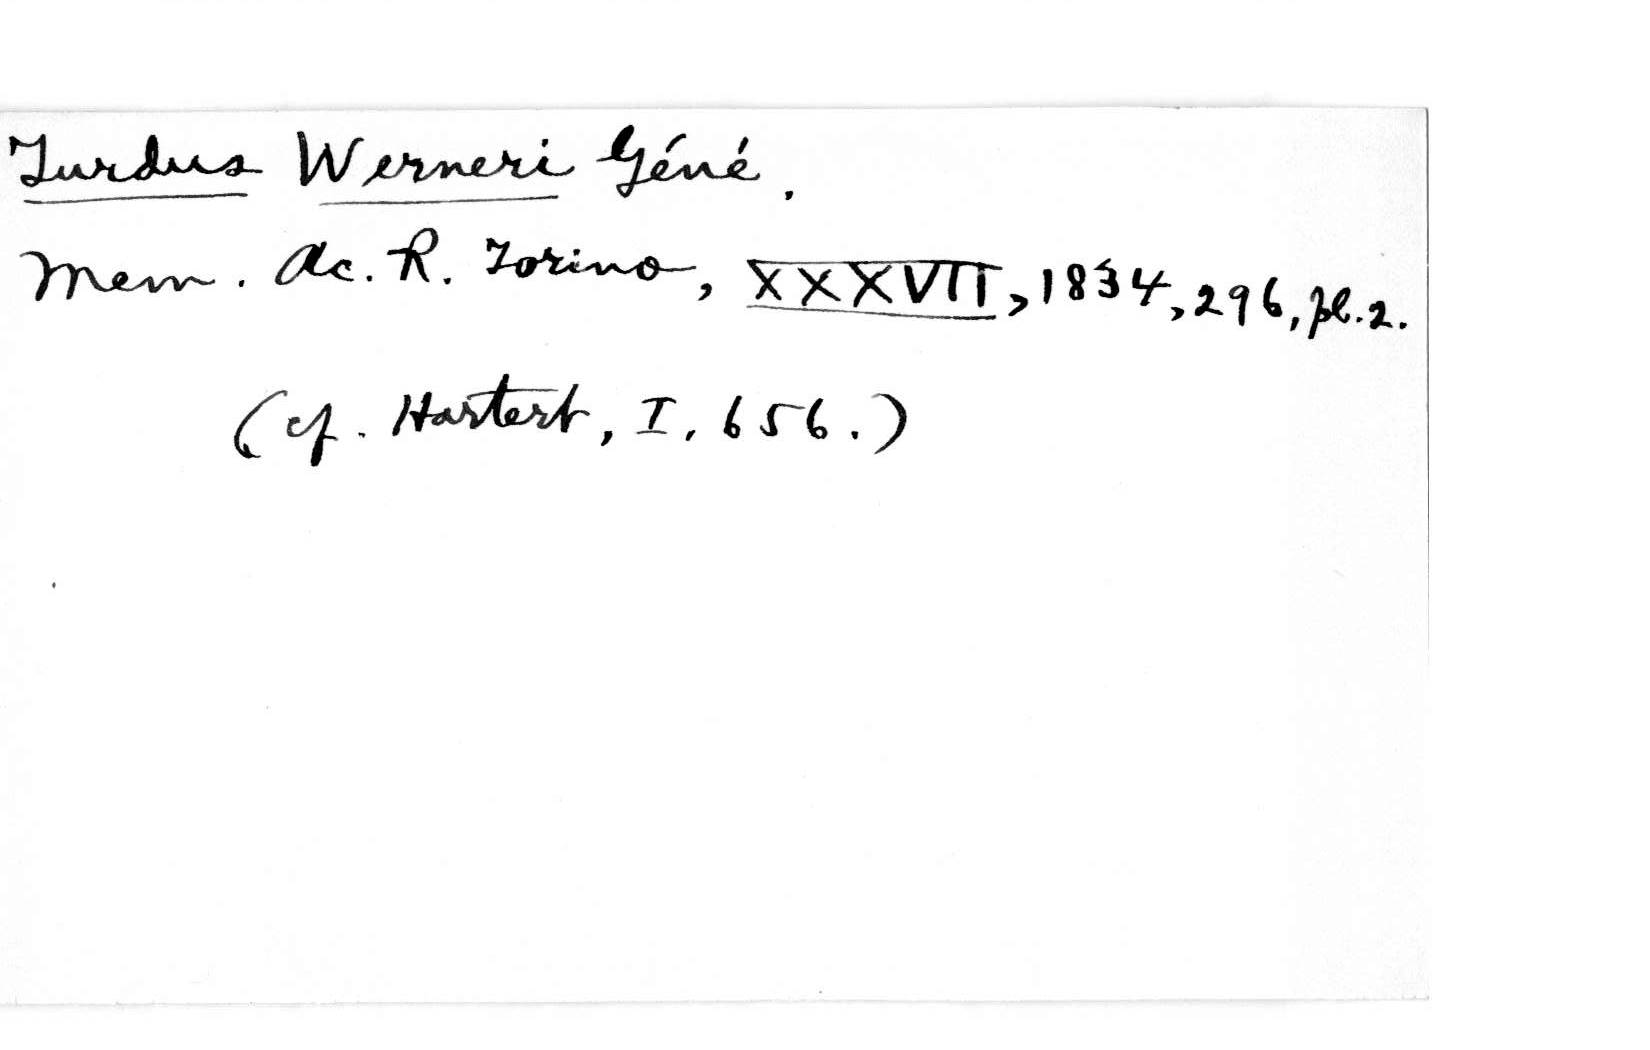 Turdus Werneri Géné.
Mem. Ac. R. Torino, XXXVII, 1834, 296, pl. 2.
(cf. Hartert, I, 656.)